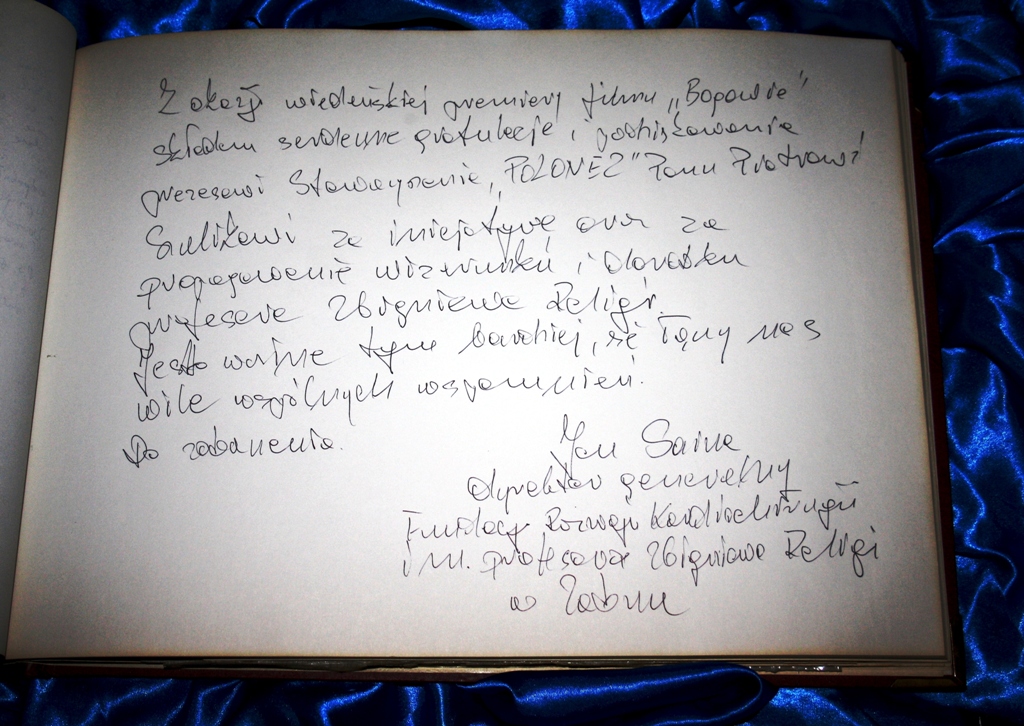 Z okazji wiedeńskiej premiery filmu „Bogowie"
składam serdeczne gratulacje i podziękowania
prezesowi Stowarzyszenia „POLONEZ" Panu Piotrowi
za inicjatywę oraz za
propagowanie wizerunku i dorobku
profesora Zbigniewa Religi.
Jest to ważne tym bardziej, że łączy nas
wiele wspólnych wspomnień.
Do zobaczenia.
Jan Sarna
dyrektor generalny
Fundacji Rozwoju Kardiochirurgii
im. profesora Zbigniewa Religi
w Zabrzu